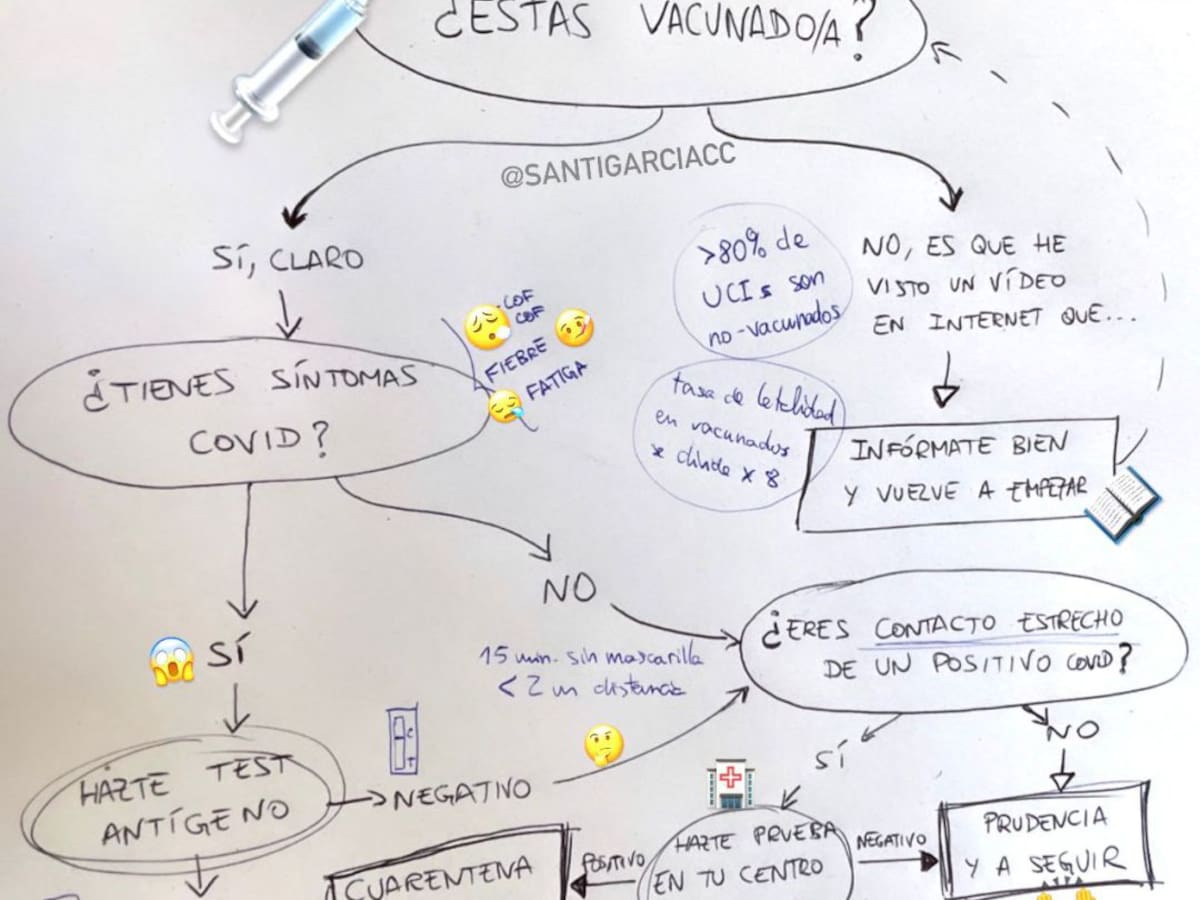 ¿ESTAS VACUNADO/A?
@SANTIGARCIACC
SÍ, CLARO
NO, ES QUE HE
VISTO UN VÍDEO
EN INTERNET QUE...
>80% de
UCIs son
no-vacunados
COF
COF
FIEBRE
FATIGA
¿TIENES SÍNTOMAS
COVID?
tasa de letalidad
en vacunados
se divide x 8
INFÓRMATE BIEN
Y VUELVE A EMPEZAR
NO
SÍ
¿ERES CONTACTO ESTRECHO
DE UN POSITIVO COVID?
15 min. sin mascarilla
< 2 m distancia
SÍ
NO
HÁZTE TEST
ANTÍGENO
C
T
NEGATIVO
CUARENTENA
POSITIVO
HAZTE PRUEBA
EN TU CENTRO
NEGATIVO
PRUDENCIA
Y A SEGUIR